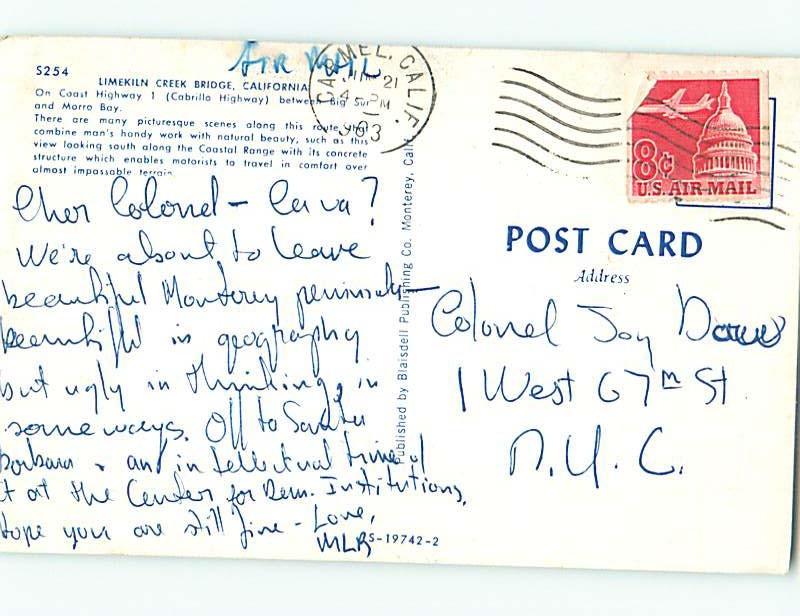 AIR MAIL
S254
LIMEKILN CREEK BRIDGE, CALIFORNIA
On Coast Highway 1 (Cabrillo Highway) between Big Sur
and Morro Bay.
There are many picturesque scenes along this route that
combine man's handy work with natural beauty, such as this
view looking south along the Coastal Range with its concrete
structure which enables motorists to travel in comfort over
almost impassable terrain.
CARMEL, CALIF.
JUN 21
4 PM
1963
8¢
U.S. AIR MAIL
Cher Colonel - Ca va?
We're about to leave
beautiful Monterey peninsula -
beautiful in geography
but ugly in thinking, in
some ways. Off to Santa
Barbara & an intellectual time of
it at the Center for Dem. Institutions.
Hope you are still fine - Love,
MLR
Published by Blaisdell Publishing Co. Monterey, Calif.
S-19742-2
POST CARD
Address
Colonel Joy
1 West 67th St.
N.Y.C.